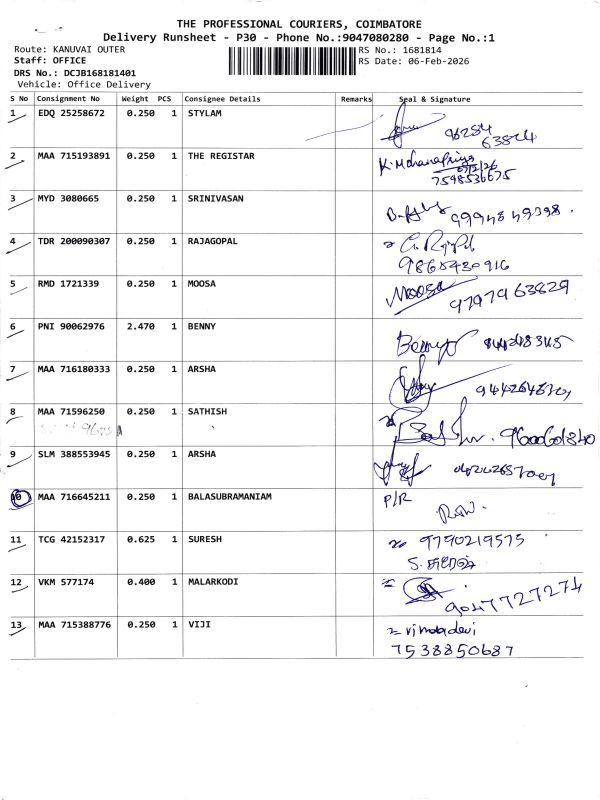 THE PROFESSIONAL COURIERS, COIMBATORE
Delivery Runsheet - P30 - Phone No.:9047080280 - Page No.:1
Route: KANUVAI OUTER
RS No.: 1681814
Staff: OFFICE
RS Date: 06-Feb-2026
DRS No.: DCJB168181401
Vehicle: Office Delivery
S No Consignment No Weight PCS Consignee Details Remarks Seal & Signature
1 EDQ 25258672 0.250 1 STYLAM
96284
2 MAA 715193891 0.250 1 THE REGISTAR
K. Mohanapriya
7598536675
3 MYD 3080665 0.250 1 SRINIVASAN
4 TDR 200090307 0.250 1 RAJAGOPAL
9865430916
5 RMD 1721339 0.250 1 MOOSA
Moosa 9797963829
6 PNI 90062976 2.470 1 BENNY
Benny
7 MAA 716180333 0.250 1 ARSHA
8 MAA 71596250 0.250 1 SATHISH
9 SLM 388553945 0.250 1 ARSHA
10 MAA 716645211 0.250 1 BALASUBRAMANIAM
P/R
11 TCG 42152317 0.625 1 SURESH
9790219575
12 VKM 577174 0.400 1 MALARKODI
9047727274
13 MAA 715388776 0.250 1 VIJI
vimaladevi
7538850687